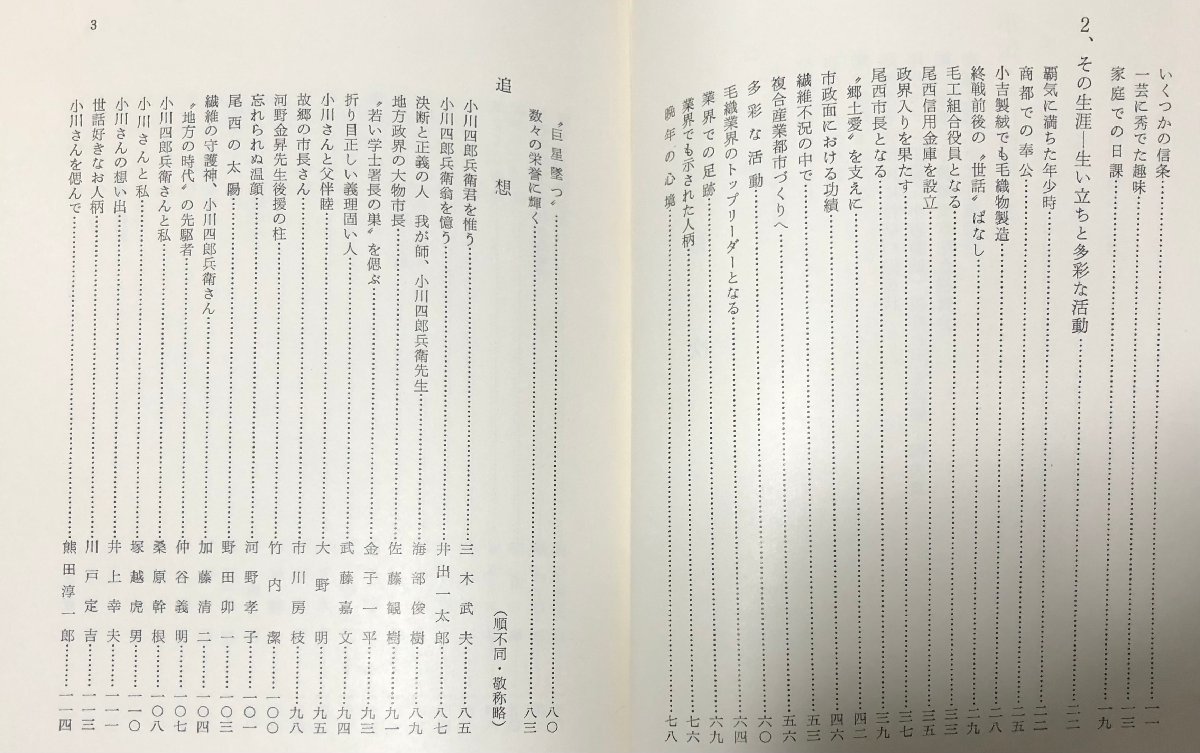 いくつかの信条……一一
一芸に秀でた趣味……一三
家庭での日課……一九
2、その生涯―生い立ちと多彩な活動……二二
覇気に満ちた年少時……二二
商都での奉公……二五
小吉製絨でも毛織物製造……二八
終戦前後の〝世話〟ばなし……二九
毛工組合役員となる……三三
尾西信用金庫を設立……三五
政界入りを果たす……三七
尾西市長となる……三九
〝郷土愛〟を支えに……四二
市政面における功績……四六
繊維不況の中で……五三
複合産業都市づくりへ……五六
多彩な活動……六〇
毛織業界のトップリーダーとなる……六四
業界での足跡……六九
業界でも示された人柄……七六
晩年の心境……七八
〝巨星墜つ〟……八〇
数々の栄誉に輝く……八三
追想 (順不同・敬称略)
小川四郎兵衛君を惟う……三木武夫……八五
小川四郎兵衛翁を憶う……井出一太郎……八八
決断と正義の人 我が師、小川四郎兵衛先生……海部俊樹……八九
地方政界の大物市長……佐藤観樹……九二
〝若い学士署長の巣〟を偲ぶ……金子一平……九三
折り目正しい義理固い人……武藤嘉文……九四
小川さんと父伴睦……大野明……九五
故郷の市長さん……市川房枝……九八
河野金昇先生後援の柱……竹内潔……一〇〇
忘れられぬ温顔……河野孝子……一〇一
尾西の太陽……野田卯一……一〇三
繊維の守護神、小川四郎兵衛さん……加藤清二……一〇四
〝地方の時代〟の先駆者……仲谷義明……一〇七
小川四郎兵衛さんと私……桑原幹根……一〇八
小川さんと私……塚越虎男……一一〇
小川さんの想い出……井上幸夫……一一一
世話好きなお人柄……川戸定吉……一一三
小川さんを偲んで……熊田淳一郎……一一四
3